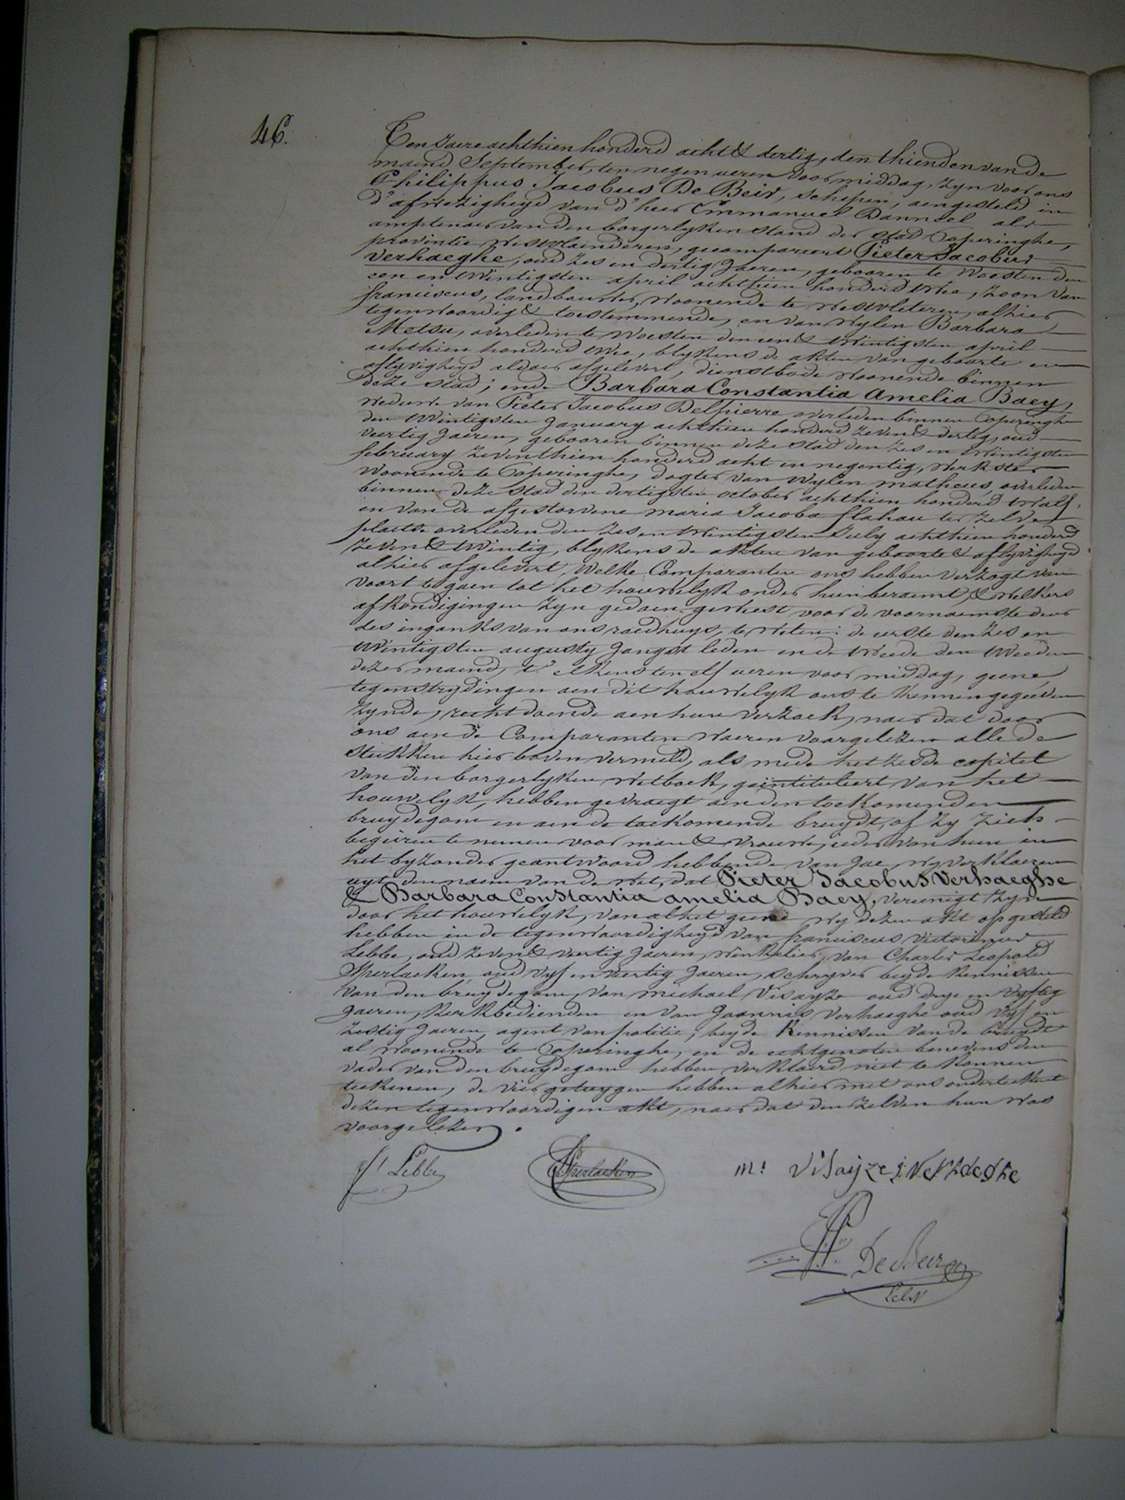 46.
Ten jaere achthien honderd acht & dertig, den thienden van de
maend September, ten negen ueren voormiddag, zyn voor ons
Philippus Jacobus De Beir, schepen, aengesteld in
d'afwezigheyd van d'heer Emmanuel Danneel als
amptenaer van den borgerlyken stand der stad Poperinghe,
provintie Westvlaenderen, gecompareert Pieter Jacobus
Verhaeghe, oud zes en dertig Jaeren, gebooren te Woesten den
een en twintigsten april achthien honderd twee, zoon van
franciscus, landbouwer, woonende te Westvleteren, alhier
tegenwoordig & toestemmende, en van wylen Barbara
Metsu, overleden te Woesten den een & twintigsten april
achthien honderd twee, blykens de akten van geboorte en
aflyvigheyd aldaer afgelevert, dienstbode woonende binnen
deze stad; ende Barbara Constantia Amelia Baey,
weduwe van Pieter Jacobus Delpierre overleden binnen Poperinghe
den twintigsten January achthien honderd zeven & dertig, oud
veertig Jaeren, gebooren binnen deze stad den zes en twintigsten
february zeventhien honderd acht en negentig, werkster
woonende te Poperinghe, dogter van wylen matheus, overleden
binnen deze stad den dertigsten october achthien honderd twalf,
en van de afgestorvene maria Jacoba flahau ter zelve
plaetse overleden den zes en twintigsten July achthien honderd
zeven & twintig, blykens de akten van geboorte & aflyvigheyd
alhier afgelevert. Welke Comparanten ons hebben verzogt van
voort te gaen tot het houwelyk onder hun beraemt, & welkers
afkondigingen zyn gedaen geweest voor de voornaemste deur
des ingankx van ons raedhuys, te weten: de eerste den zes en
twintigsten augusty Jongst leden en de tweede den tweeden
dezer maend, t' elkens ten elf ueren voormiddag, geene
tegenstrydingen aen dit houwelyk ons te kennen gegeeven
zynde, recht doende aen hun verzoek, naer dat door
ons aen de Comparanten waeren voorgelezen alle de
stukken hier boven vermeld, als mede het zesde capitel
van den borgerlyken wetboek, geintituleert van het
houwelyk, hebben gevraegt aen den toekomenden
bruydegom en aen de toekomende bruydt, of zy zich
begeeren te nemen voor man & vrouwe, ieder van hun in
het byzonder geantwoord hebbende van Jae, wy verklaeren
uyt den naem van de wet, dat Pieter Jacobus Verhaeghe
& Barbara Constantia amelia Baey, vereenigt zyn
door het houwelyk, van al het geene wy dezen akt opgesteld
hebben in de tegenwoordigheyd van franciscus victorinus
Lebbe, oud zeven & veertig Jaeren, winkelier, van Charles Leopold
Sperlaeken, oud vyf en veertig Jaeren, schryver beyde kennissen
van den bruydegom, van michael Visayze oud drye en vyftig
jaeren, kerkbedienden en van Joannes Verhaeghe oud vyf en
zestig Jaeren, agent van politie, beyde kennissen van de bruydt
al woonende te Poperinghe, en de echtgenoten benevens den
vader van den bruydegom hebben verklaerd niet te konnen
teekenen, de vier getuygen hebben alhier met ons onderteekent
dezen tegenwoordigen akt, naer dat den zelven hun was
voorgelezen.
f. Lebbe Sperlaeken m: Visayze j Verhaeghe
De Beir